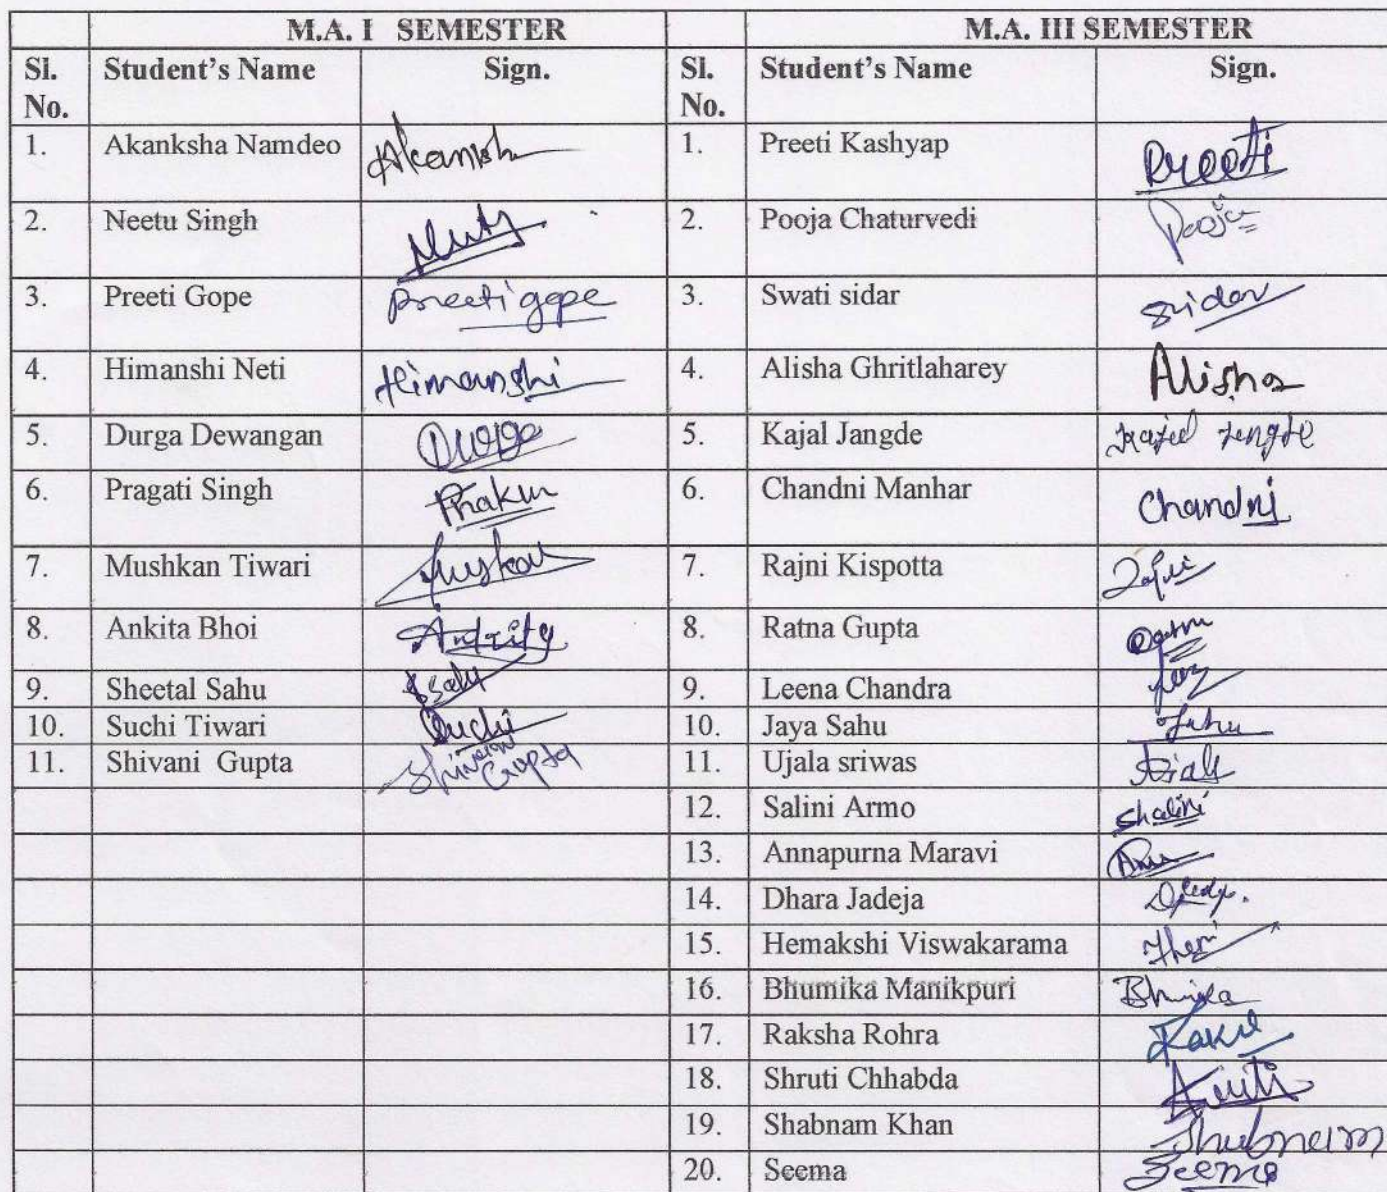 M.A. I SEMESTER M.A. III SEMESTER
Sl. No. Student's Name Sign. Sl. No. Student's Name Sign.
1. Akanksha Namdeo 1. Preeti Kashyap Preeti
2. Neetu Singh 2. Pooja Chaturvedi Pooja
3. Preeti Gope Preeti gope 3. Swati sidar Sidar
4. Himanshi Neti Himanshi 4. Alisha Ghritlaharey Alisha
5. Durga Dewangan Durga 5. Kajal Jangde
6. Pragati Singh 6. Chandni Manhar Chandni
7. Mushkan Tiwari 7. Rajni Kispotta
8. Ankita Bhoi 8. Ratna Gupta
9. Sheetal Sahu SSahu 9. Leena Chandra
10. Suchi Tiwari Suchi 10. Jaya Sahu
11. Shivani Gupta Shivani Gupta 11. Ujala sriwas
12. Salini Armo Shalini
13. Annapurna Maravi
14. Dhara Jadeja
15. Hemakshi Viswakarama
16. Bhumika Manikpuri
17. Raksha Rohra
18. Shruti Chhabda
19. Shabnam Khan
20. Seema Seema